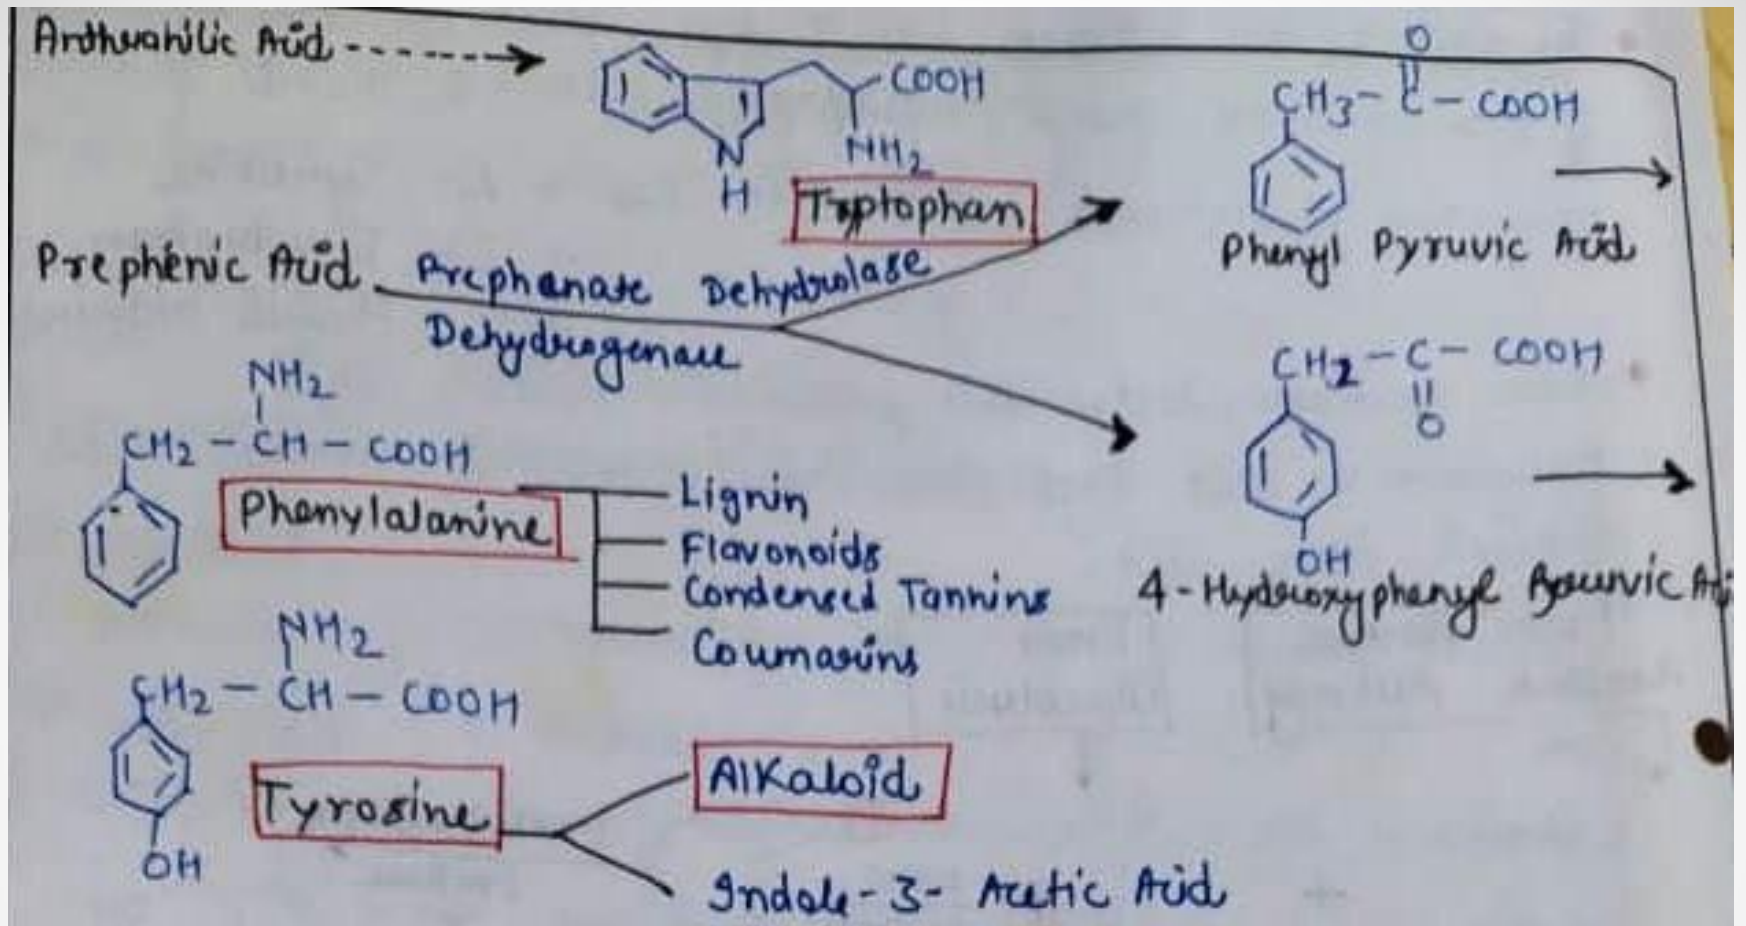 Anthranilic Acid
COOH
NH2
N
H
Tryptophan
O
CH3 - C - COOH
Phenyl Pyruvic Acid
Prephenic Acid
Prephanate Dehydrolase
Dehydrogenase
CH2 - C - COOH
O
OH
4-Hydroxyphenyl
NH2
CH2 - CH - COOH
Phenylalanine
Lignin
Flavonoids
Condensed Tannins
Coumarins
NH2
CH2 - CH - COOH
OH
Tyrosine
Alkaloid
Indole-3- Acetic Acid